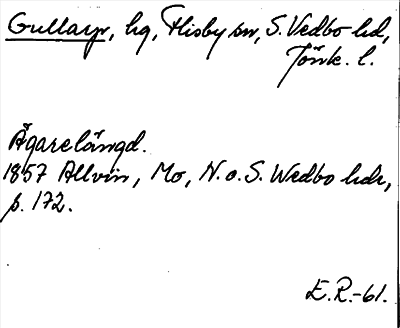 Gullarp, hg, Flisby sn, S. Vedbo hd,
Jönk. l.
Ägarelängd.
1857 Allvin, Mo, N. o. S. Wedbo hdr,
p. 172.
E. R. -61.